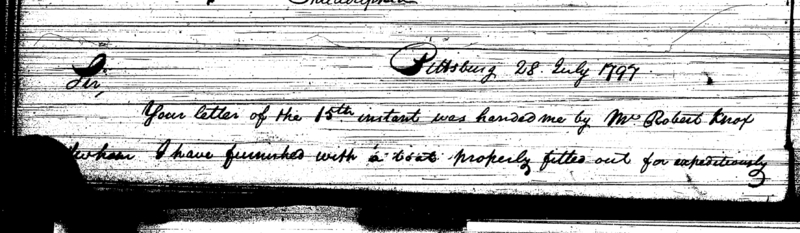 Philadelphia
Pittsburg 28 July 1797
Sir,
Your letter of the 15th instant was handed me by Mr Robert Knox
whom I have furnished with a boat properly fitted out for expeditiously